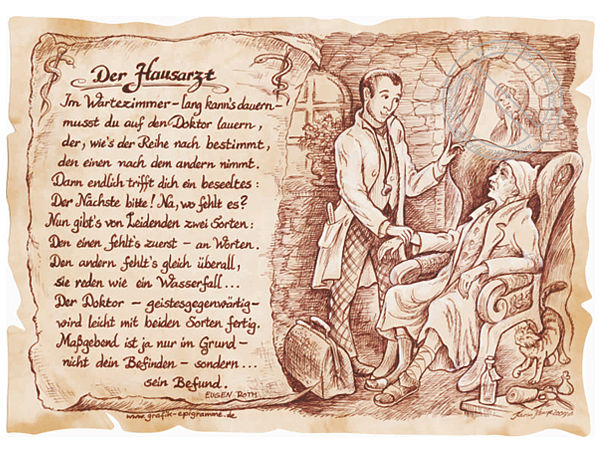 Der Hausarzt
Im Wartezimmer – lang kann's dauern –
musst du auf den Doktor lauern,
der, wie's der Reihe nach bestimmt,
den einen nach dem andern nimmt.
Dann endlich trifft dich ein beseeltes:
Der Nächste bitte! Na, wo fehlt es?
Nun gibt's von Leidenden zwei Sorten:
Den einen fehlt's zuerst – an Worten.
Den andern fehlt's gleich überall,
sie reden wie ein Wasserfall...
Der Doktor – geistesgegenwärtig –
wird leicht mit beiden Sorten fertig.
Maßgebend ist ja nur im Grund –
nicht dein Befinden – sondern...
sein Befund.
EUGEN ROTH
www.grafik-epigramme.de